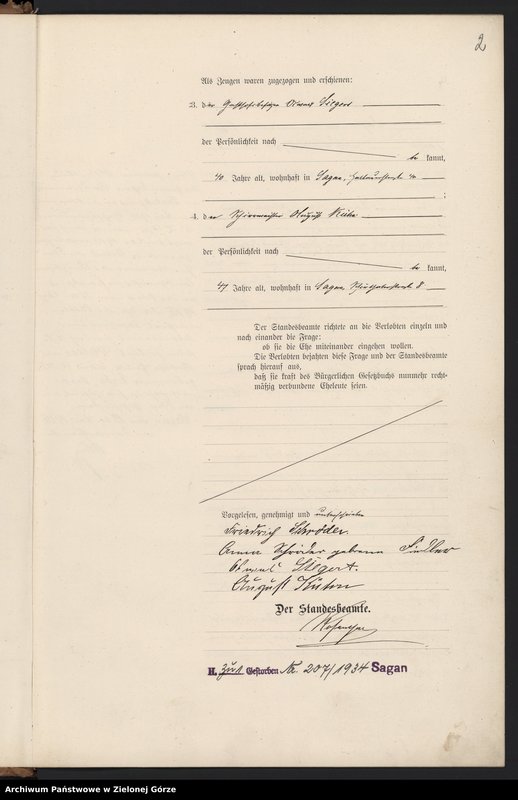 2
Als Zeugen waren zugezogen und erschienen:
3. der Oswald Siegert
der Persönlichkeit nach
be kannt,
40 Jahre alt, wohnhaft in Sagan,
;
4. der August Kuhn
der Persönlichkeit nach
be kannt,
47 Jahre alt, wohnhaft in Sagan, 8
Der Standesbeamte richtete an die Verlobten einzeln und
nach einander die Frage:
ob sie die Ehe miteinander eingehen wollen.
Die Verlobten bejahten diese Frage und der Standesbeamte
sprach hierauf aus,
daß sie kraft des Bürgerlichen Gesetzbuchs nunmehr recht-
mäßig verbundene Eheleute seien.
Vorgelesen, genehmigt und unterschrieben
Friedrich Schröder.
Anna Schröder geborene Fiedler
Oswald Siegert.
August Kuhn
Der Standesbeamte.
H. zu 1 Gestorben Nr. 207/1934 Sagan
Archiwum Państwowe w Zielonej Górze